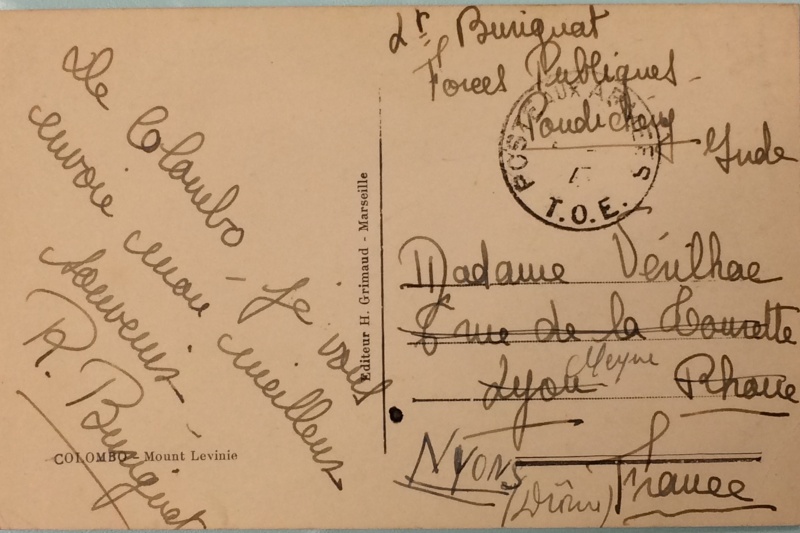 De Colombo - Je vous
envoie mon meilleur
souvenir -
R. Buniguat
COLOMBO - Mount Levinie
Editeur H. Grimaud - Marseille
Lt Buniguat
Forces Publiques -
Pondichery
Inde
POSTE AUX ARMEES
T.O.E.
Madame Vérilhac
6 rue de la Tourette
Meyne
Lyon Rhone
NYONS
(Drôme) France